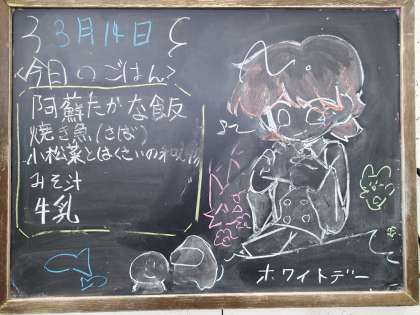 3月14日
<今日のごはん>
阿蘇たかな飯
焼き魚(さば)
小松菜とはくさいの和え物
みそ汁
牛乳
ホワイトデー